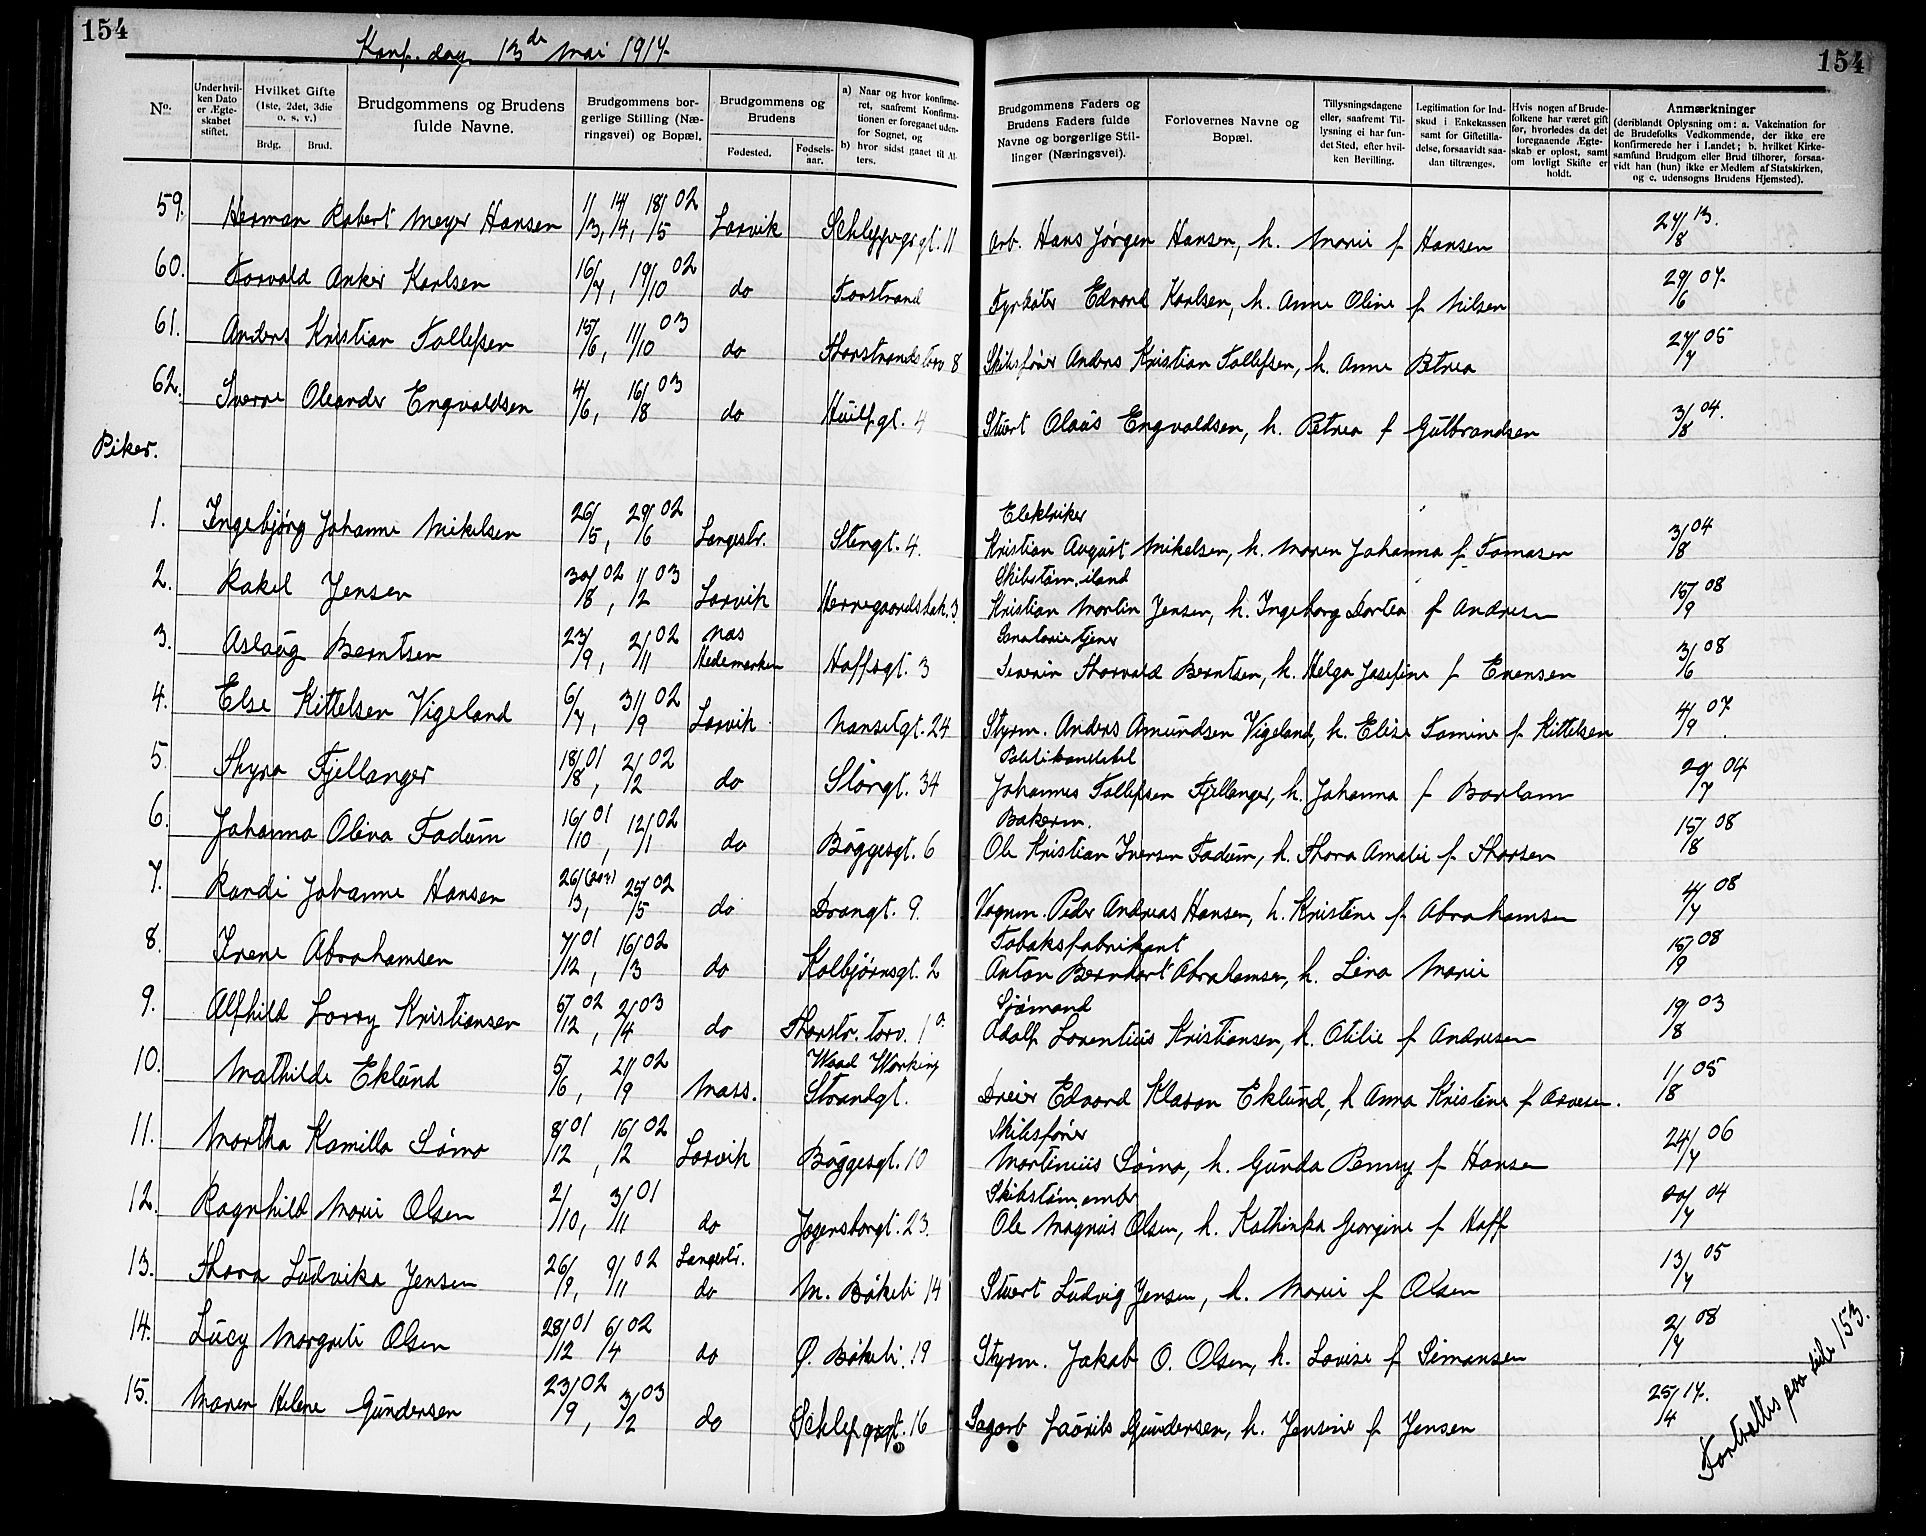 154
154
Konf. dag. 13de Mai 1917.
No.
Under hvilken Dato er Ægteskabet stiftet.
Hvilket Gifte (1ste, 2det, 3die o. s. v.)
Brdg.
Brud.
Brudgommens og Brudens fulde Navne.
Brudgommens borgerlige Stilling (Næringsvei) og Bopæl.
Brudgommens og Brudens
Fødested.
Fødselsaar.
a) Naar og hvor konfirmeret, saafremt Konfirmationen er foregaaet udenfor Sognet, og
b) hvor sidst gaaet til Alters.
Brudgommens Faders og Brudens Faders fulde Navne og borgerlige Stillinger (Næringsvei).
Forlovernes Navne og Bopæl.
Tillysningsdagene eller, saafremt Tillysning ei har fundet Sted, efter hvilken Bevilling.
Legitimation for Indskud i Enkekassen samt for Giftetilladelse, forsaavidt saadan tiltrænges.
Hvis nogen af Brudefolkene har været gift før, hvorledes da det foregaaende Ægteskab er opløst, samt om lovligt Skifte er holdt.
Anmærkninger
(deriblandt Oplysning om: a. Vakcination for de Brudefolks Vedkommende, der ikke ere konfirmerede her i Landet; b. hvilket Kirkesamfund Brudgom eller Brud tilhører, forsaavidt han (hun) ikke er Medlem af Statskirken, og c. udensogns Brudens Hjemsted).
59. Herman Robert Meyer Hansen 1/3, 14/4, 18/5 02 Larvik gt. 11 Arb. Hans Jörgen Hansen, h. Marie f Hansen 27/8 13.
60. Torvald Anker Karlsen 16/7, 19/10 02 do Torstrand Fyrböter Edvard Karlsen, h. Anne Oline f Nilsen 29/6 07.
61. Anders Kristian Tollefsen 15/6, 11/10 03 do Thorstrands torv 8 Skibsförer Anders Kristian Tollefsen, h. Anne Petrea 27/7 05
62. Sverre Oleander Engvaldsen 4/6, 16/8 03 do Huitf.gt. 4 Stuert Olaus Engvaldsen, h. Petrea f Gulbrandsen 3/8 04.
Piker.
Elektriker
1. Ingebjørg Johanne Mikelsen 26/5, 29/6 02 Langestr. Stengt. 4. Kristian August Mikelsen, h. Maren Johanna f. Tomasen 3/8 04
Skibstöm. iland
2. Rakel Jensen 30/8 02, 1/2 03 Larvik Herregaardsbak. 3. Kristian Martin Jensen, h. Ingeborg Dortea f Andresen 15/9 08
Sanatorietjener
3. Aslaug Berntsen 23/9, 2/11 02 Nas Hedemarken Hoffsgt. 3 Severin Thorvald Berntsen, h. Helga Josefine f Evensen 3/6 08
4. Else Kittelsen Vigeland 6/7, 31/9 02 Larvik Nansetgt. 24 Styrm. Anders Amundsen Vigeland, h. Elise Tomine f Kittelsen 4/9 07.
Politikonstabel
5. Thyra Fjellanger 18/8 01, 2/2 02 do Storgt. 34 Johannes Tollefsen Fjellanger, h. Johanna f Barlam 29/7 04
Bakerm.
6. Johanna Oliva Fadum 16/10 01, 12/1 02 do Böggesgt. 6 Ole Kristian Iversen Fadum, h. Thora Amalie f. Thorsen 15/8 08
7. Randi Johanne Hansen 26/3, 25/5 02 do Drangt. 9. Vognm. Peder Andreas Hansen, h. Kristine f Abrahamsen 4/7 08
Tobaksfabrikant
8. Irene Abrahamsen 7/12 01, 16/3 02 do Kolbjörnsgt. 2 Anton Bernhart Abrahamsen, h. Lina Marie 15/9 08
Sjömand
9. Alfhild Lovry Kristiansen 5/12 02, 2/4 03 do Thorstr. torv. 1 a. Adolf Laurentius Kristiansen, h. Otilie f Andresen 19/8 03
Wood Working
10. Mathilde Eklund 5/6, 21/9 02 Mass. Strandgt. Dreier Edvard Klason Eklund, h Anna Kristine f Arvesen. 1/8 05
Skibsförer
11. Martha Kamilla Sömo 8/12 01, 16/2 02 Larvik Böggesgt. 10 Martinius Sömo, h. Gunda Penny f Hansen 24/7 06
Skibstömmermand
12. Ragnhild Marie Olsen 2/10, 3/11 01 do Jegersborgt. 23. Ole Magnus Olsen, h. Kathinka Georgine f Hoff 20/7 04
13. Thora Ludvika Jensen 26/9, 9/11 02 Langestr. do M. Bökeli 14 Stuert Ludvig Jensen, h. Marie f Olsen 13/7 05
14. Lucy Margrete Olsen 28/12 01 6/4 02 do Ö. Bökeli. 19 Styrm. Jakob O. Olsen, h. Lovise f Simonsen 2/7 08
15. Maren Helene Gundersen 23/9 02, 3/2 03 do gt. 16 Sagarb Laurits Gundersen, h. Jensine f Jensen 25/4 17.
Fortsættes paa side 153.